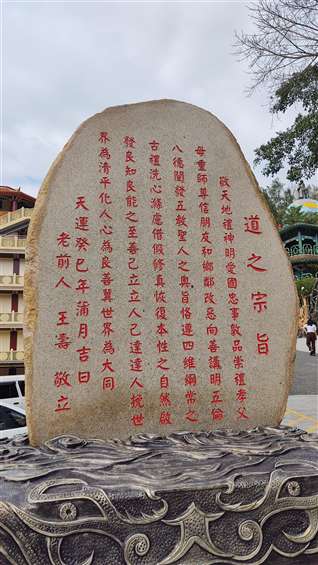 道之宗旨
敬天地禮神明愛國忠事敦品崇禮孝父
母重師尊信朋友和鄉鄰改惡向善講明五倫
八德闡發五教聖人之奧旨恪遵四維綱常之
古禮洗心滌慮借假修真恢復本性之自然啟
發良知良能之至善己立立人己達達人挽世
界為清平化人心為良善冀世界為大同
天運癸巳年蒲月吉日
老前人 王壽 敬立